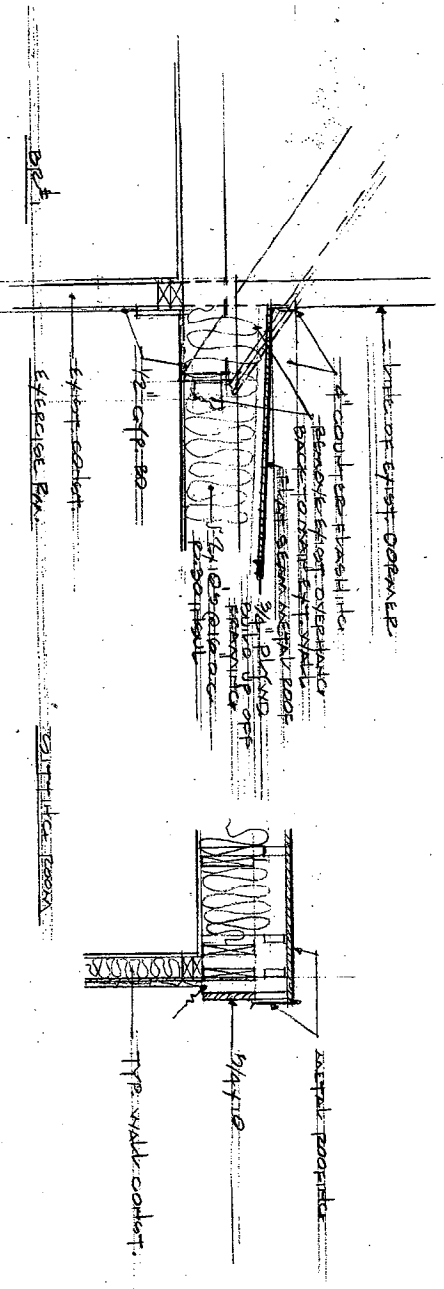 LINE OF EXIST. DORMER
4" COUNTER FLASHING
REMOVE EXIST. OVERHANG
BACK TO INSIDE EXT. WALL
FLAT SEAM METAL ROOF
3/4" PLYWD
BUILD UP OFF
FRAMING
2x10'S @ 16" O.C.
R-30 INSUL
1/2" GYP. BD
EXIST. CONST.
BR #1
EXERCISE RM.
SITTING ROOM
METAL ROOFING
5/4 x 10
TYP. WALL CONST.